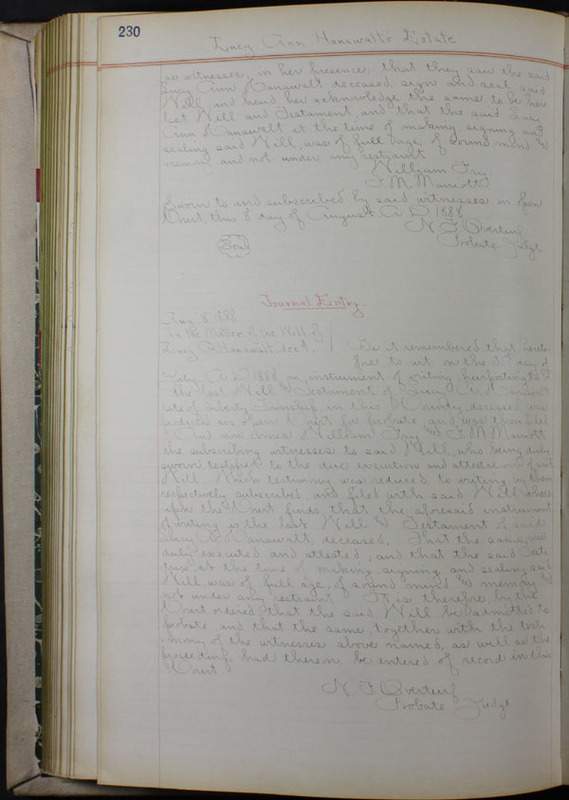 230
Lucy Ann Hanawalt's Estate
as witnesses, in her presence; that they saw the said
Lucy Ann Hanawalt deceased, sign and seal said
Will, and heard her acknowledge the same to be her
last Will and Testament, and that the said Lucy
Ann Hanawalt at the time of making signing and
sealing said Will, was of full age, of sound mind &
memory and not under any restraint
William Fry
T. M. Marriott
Sworn to and subscribed by said witnesses in open
Court, this 8 day of August A. D. 1888
N. F. Overturf
Probate Judge
Seal
Journal Entry
Aug 8 1888
In the Matter of the Will of
Lucy A Hanawalt decd. Be it remembered that hereto-
fore to wit on the day of
July A. D. 1888, an instrument of writing, purporting to be
the last Will & Testament of Lucy A. Hanawalt
late of Liberty Township in this County, deceased, was
produced in open Court for probate and was then filed
And now comes William Fry & T. M. Marriott
the subscribing witnesses to said Will, who being duly
sworn testified to the due execution and attestation of said
Will. Which testimony was reduced to writing by them
respectively subscribed, and filed with said Will where-
upon the Court finds, that the aforesaid instrument
of writing is the last Will & Testament of said
Lucy A Hanawalt, deceased, That the same was
duly executed and attested, and that the said Testa-
trix at the time of making, signing and sealing said
Will, was of full age, of sound mind and memory and
not under any restraint. It is, therefore, by the
Court ordered, that the said Will be admitted to
probate and that the same, together with the testi-
mony of the witnesses above named, as well as the
proceedings had therein be entered of record in this
Court
N. F. Overturf
Probate Judge